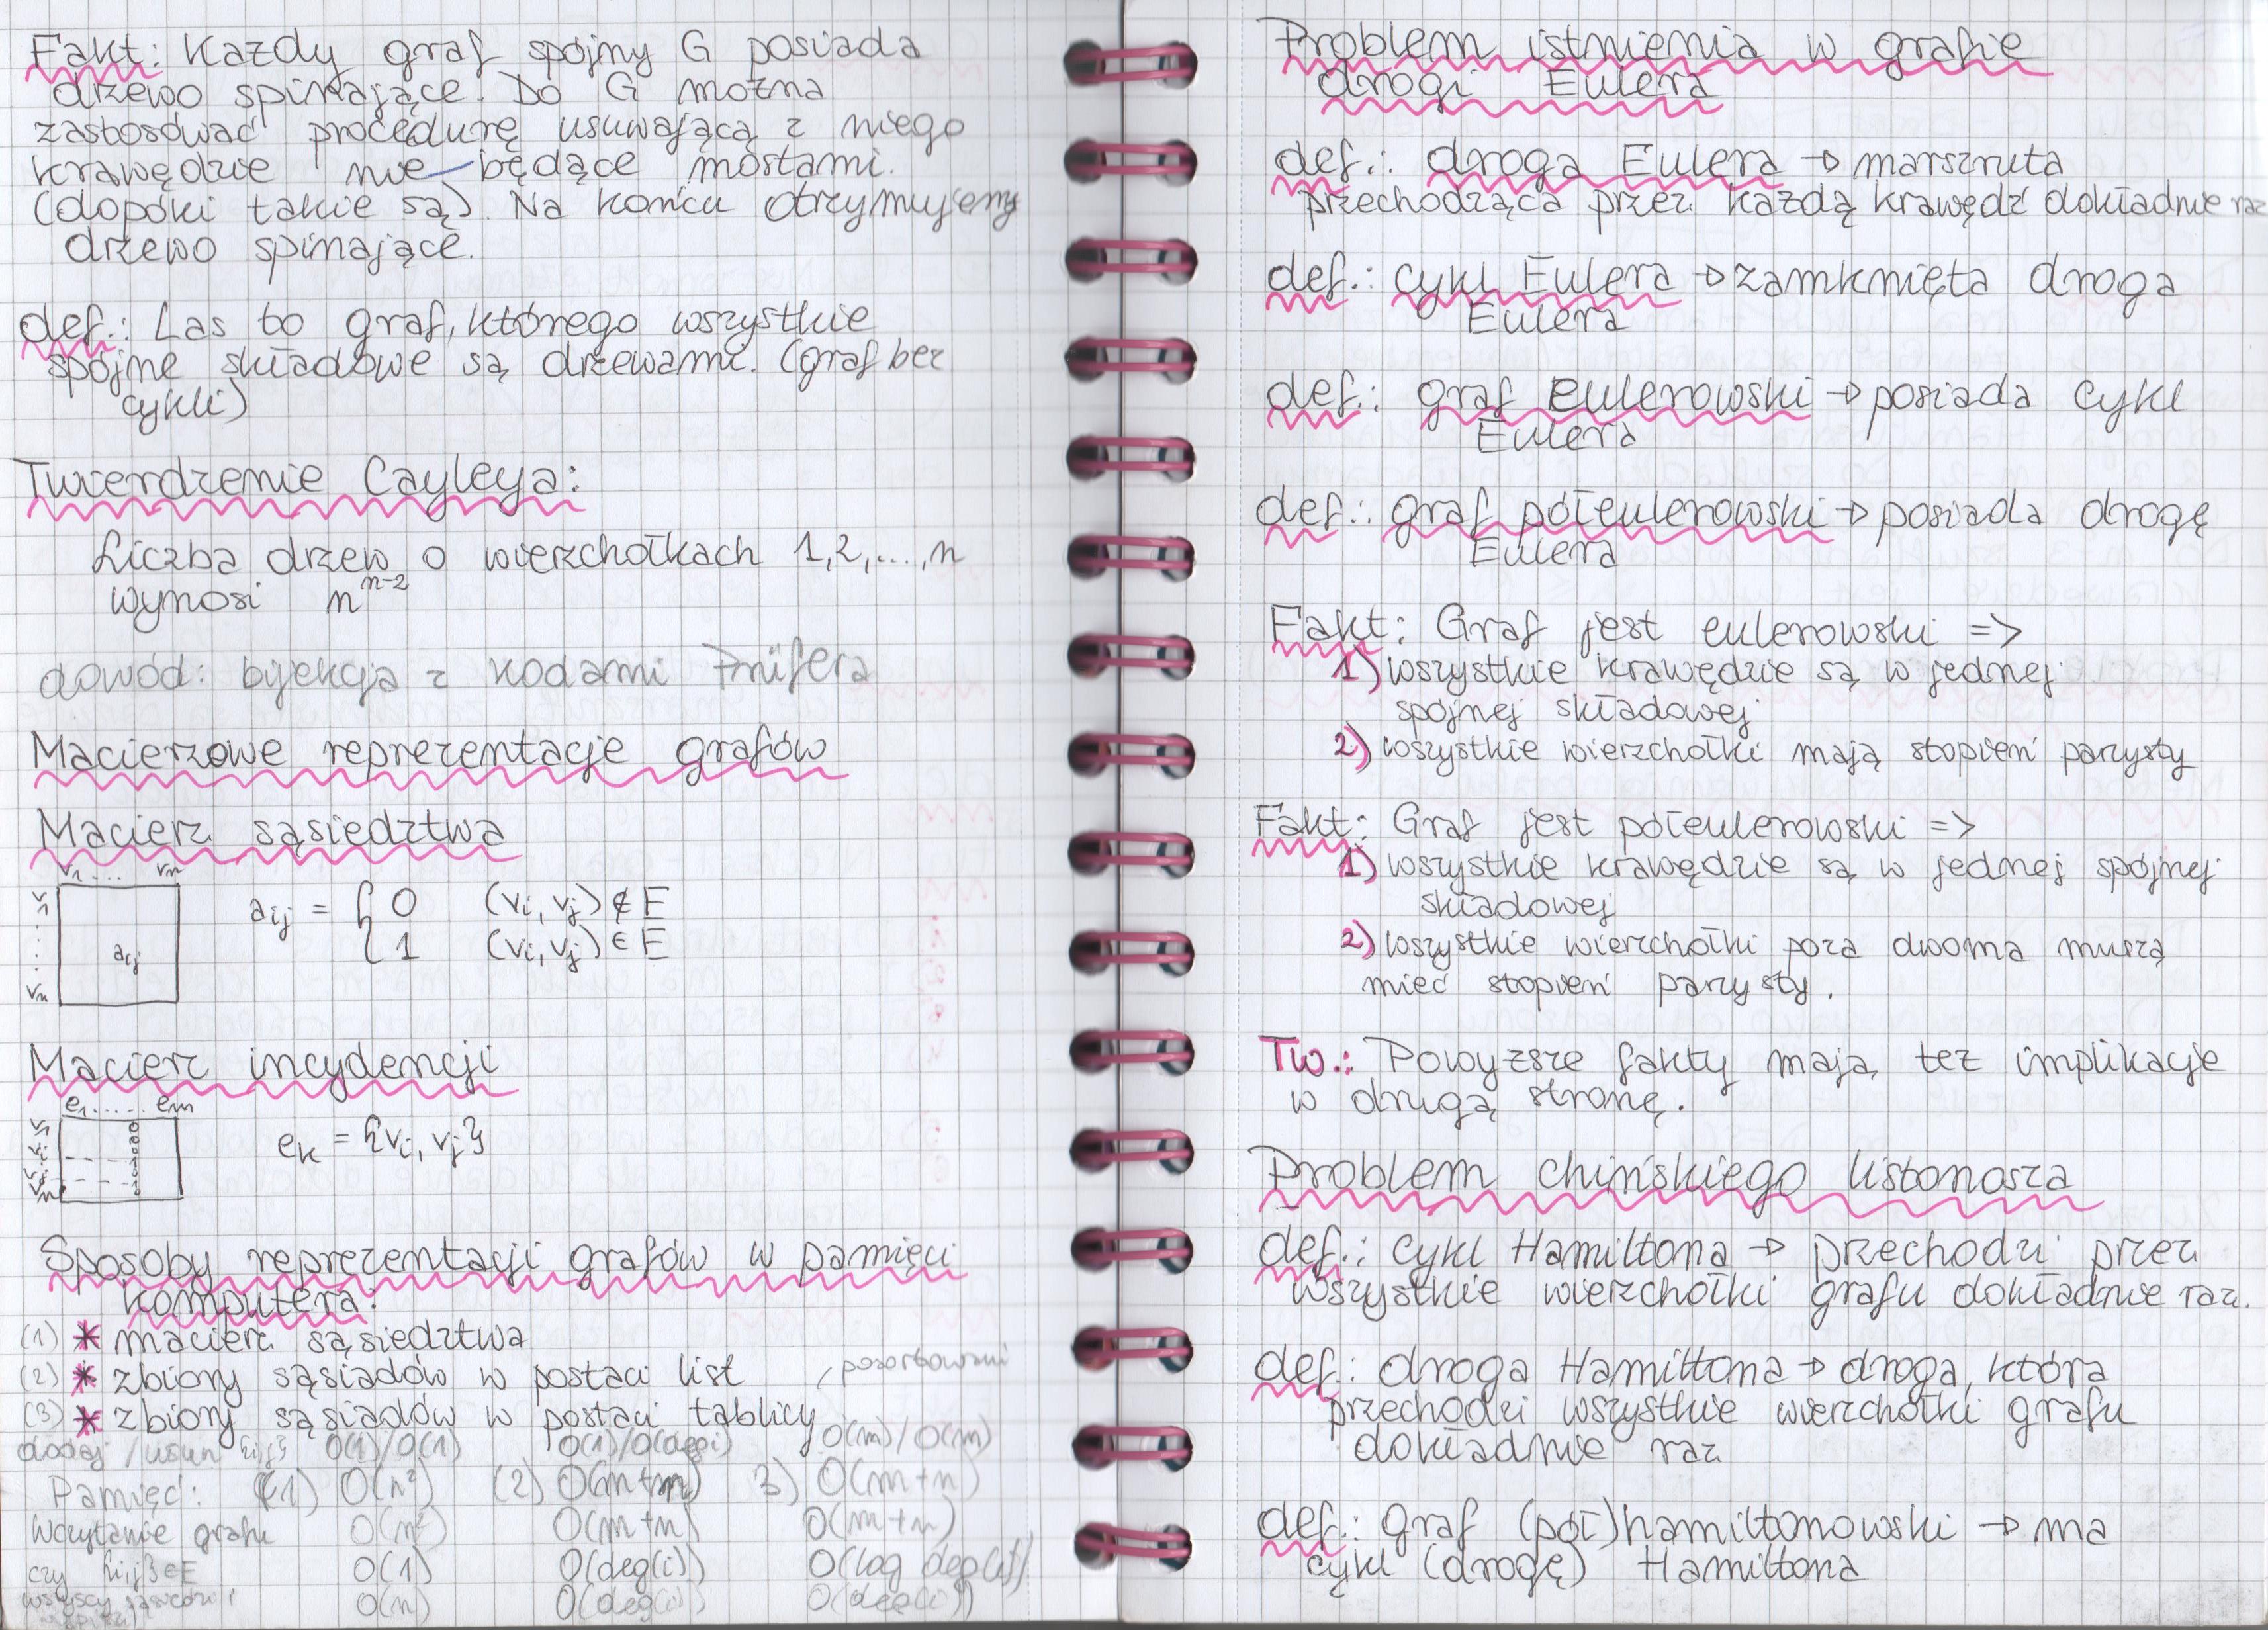 Fakt: Każdy graf spójny G posiada
drzewo spinające. Do G można
zastosować procedurę usuwającą z niego
krawędzie nie będące mostami.
(dopóki takie są). Na końcu otrzymujemy
drzewo spinające.
def.: Las to graf, którego wszystkie
spójne składowe są drzewami. (graf bez
cykli)
Twierdzenie Cayleya:
Liczba drzew o wierzchołkach 1,2,...,n
wynosi n^{n-2}
dowód: bijekcja z kodami Prüfera
Macierzowe reprezentacje grafów
Macierz sąsiedztwa
v₁ ... vₙ
v₁
aᵢⱼ = { 0 (vᵢ, vⱼ) ∉ E
1 (vᵢ, vⱼ) ∈ E
aᵢⱼ
vₙ
Macierz incydencji
e₁ ..... eₘ
v₁
vᵢ
vⱼ
vₙ
eₖ = {vᵢ, vⱼ}
Sposoby reprezentacji grafów w pamięci
komputera:
(1) * macierz sąsiedztwa
(2) * zbiory sąsiadów w postaci list
(3) * zbiory sąsiadów w postaci tablicy, posortowani
dodaj / usuń {i,j} O(1)/O(1) O(1)/O(deg i) O(m)/O(m)
Pamięć: (1) O(n²) (2) O(m+n) 3) O(m+n)
Wczytanie grafu O(n²) O(m+n) O(m+n)
czy {i,j}∈E O(1) O(deg(i)) O(log deg(i))
wszyscy sąsiedzi i O(n) O(deg(i)) O(deg(i))
Problem istnienia w grafie
drogi Eulera
def.: droga Eulera → marszruta
przechodząca przez każdą krawędź dokładnie raz
def.: cykl Eulera → zamknięta droga
Eulera
def.: graf eulerowski → posiada cykl
Eulera
def.: graf półeulerowski → posiada drogę
Eulera
Fakt: Graf jest eulerowski =>
1) wszystkie krawędzie są w jednej
spójnej składowej
2) wszystkie wierzchołki mają stopień parzysty
Fakt: Graf jest półeulerowski =>
1) wszystkie krawędzie są w jednej spójnej
składowej
2) wszystkie wierzchołki poza dwoma muszą
mieć stopień parzysty.
Tw.: Powyższe fakty mają też implikacje
w drugą stronę.
Problem chińskiego listonosza
def.: cykl Hamiltona → przechodzi przez
wszystkie wierzchołki grafu dokładnie raz.
def.: droga Hamiltona → droga, która
przechodzi wszystkie wierzchołki grafu
dokładnie raz
def.: graf (pół)hamiltonowski → ma
cykl (drogę) Hamiltona